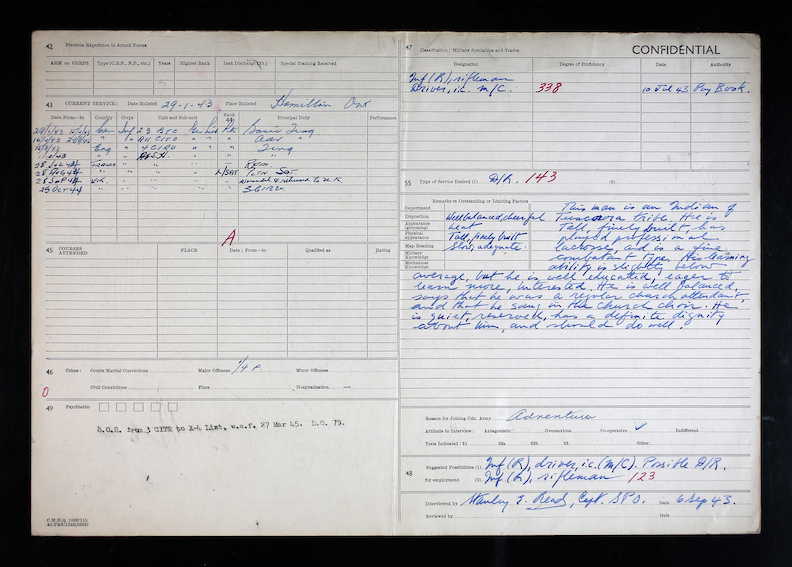 42 Previous Experience in Armed Forces
ARM or CORPS Type (C.A.N., N.P., etc.) Years Highest Rank Last Discharge Special Training Received
43 CURRENT SERVICE: Date Enlisted 29-1-43 Place Enlisted Hamilton Ont
Date From—to Country Corps Unit and Sub-unit Rank Principal Duty Performance
Inf 23 BTC Basic Trng
A11 CITC Adv "
Eng " 4 CIRU " " " Trng
France " "
28 Aug 44 " " " L/Sgt
28 Sep 44 U.K. Wounded & returned to U.K.
25 Oct 44 3 CIRU
A
45 COURSES ATTENDED PLACE Date: From—to Qualified as Rating
46 Crime: Courts Martial Convictions Major Offences Minor Offences
Civil Convictions Place Hospitalization —
0
49 Psychiatric
S.O.S. from 3 CITR to X-4 List, w.e.f. 27 Mar 45. D.O. 79.
47 Classification: Military Specialties and Trades CONFIDENTIAL
Designation Degree of Proficiency Date Authority
Inf (R), rifleman
Driver, i.c. M/C. 338 10 Jul 43 Pay Book.
55 Type of Service Desired (1) D/R. 143 (2)
Remarks re Outstanding or Limiting Factors
Department
Disposition Well balanced, cheerful
Appearance (grooming) Neat
Physical appearance Tall, finely built
Map Reading Slow, adequate.
Military Knowledge
Mechanical Knowledge
This man is an Indian of
Tuscarora tribe. He is
Tall, finely built, has
played professional
lacrosse, and is a fine
combatant type. His learning
ability is slightly below
average, but he is well educated, eager to
learn more, interested. He is well balanced,
says that he was a regular church attendant,
and that he sang in the church choir. He
is quiet, reserved, has a definite dignity
about him, and should do well.
Reason for Joining Cdn. Army Adventure
Attitude to Interview: Antagonistic Ostentatious Co-operative ✓ Indifferent
Tests Indicated: Other
48 Suggested Possibilities (1) Inf (R), driver, i.c. (M/C). Possible D/R.
for employment (2) Inf (R), rifleman 123
Interviewed by Stanley J. Read, Capt. SPO. Date 6 Sep 43.
Reviewed by Date